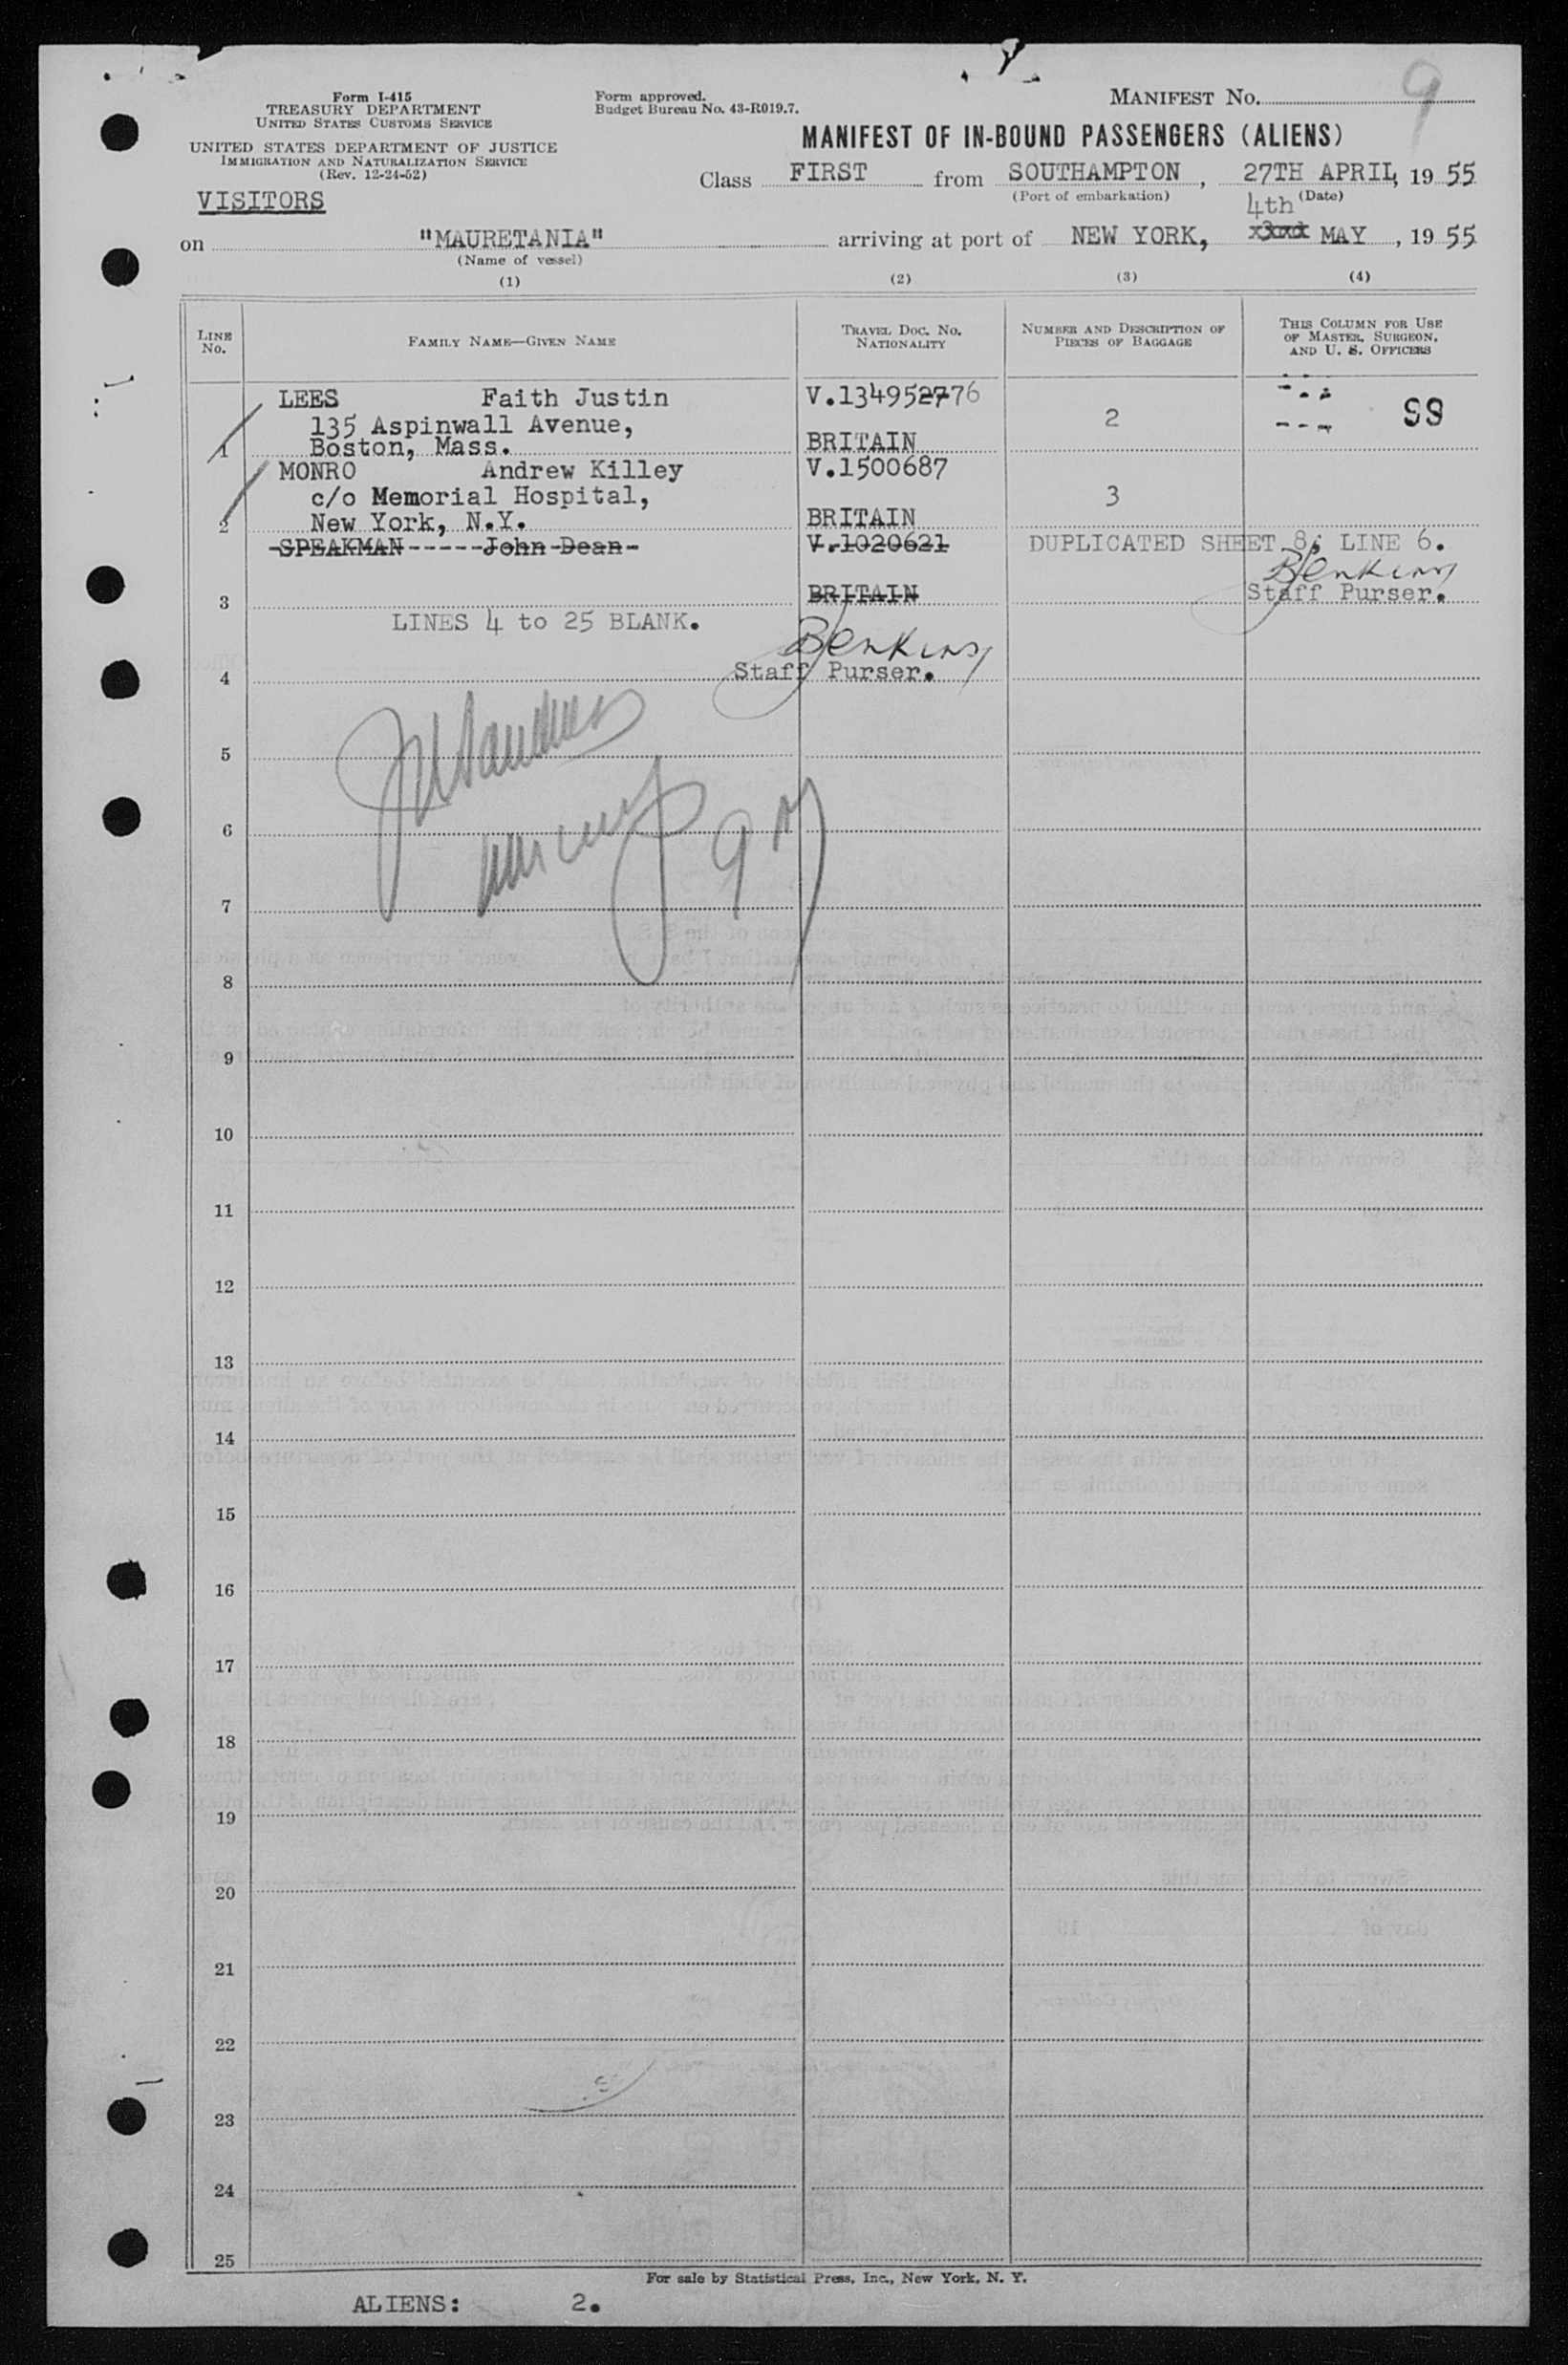 Form I-415
TREASURY DEPARTMENT
UNITED STATES CUSTOMS SERVICE
UNITED STATES DEPARTMENT OF JUSTICE
IMMIGRATION AND NATURALIZATION SERVICE
(Rev. 12-24-52)
Form approved.
Budget Bureau No. 43-R019.7.
MANIFEST No. 9
MANIFEST OF IN-BOUND PASSENGERS (ALIENS)
Class FIRST from SOUTHAMPTON, 27TH APRIL, 19 55
(Port of embarkation) (Date)
VISITORS
4th
on "MAURETANIA" arriving at port of NEW YORK, MAY, 19 55
(Name of vessel)
(1) (2) (3) (4)
LINE No.
FAMILY NAME—GIVEN NAME
TRAVEL DOC. No. NATIONALITY
NUMBER AND DESCRIPTION OF PIECES OF BAGGAGE
THIS COLUMN FOR USE OF MASTER, SURGEON, AND U. S. OFFICERS
LEES Faith Justin V.134952776
135 Aspinwall Avenue, 2 SS
1 Boston, Mass. BRITAIN
MONRO Andrew Killey V.1500687
c/o Memorial Hospital, 3
2 New York, N.Y. BRITAIN
SPEAKMAN-----John Dean- V.1020621 DUPLICATED SHEET 8, LINE 6.
BJenkins
3 BRITAIN Staff Purser.
LINES 4 to 25 BLANK.
BJenkins
4 Staff Purser.
5
6
7
8
9
10
11
12
13
14
15
16
17
18
19
20
21
22
23
24
25
For sale by Statistical Press, Inc., New York, N. Y.
ALIENS: 2.